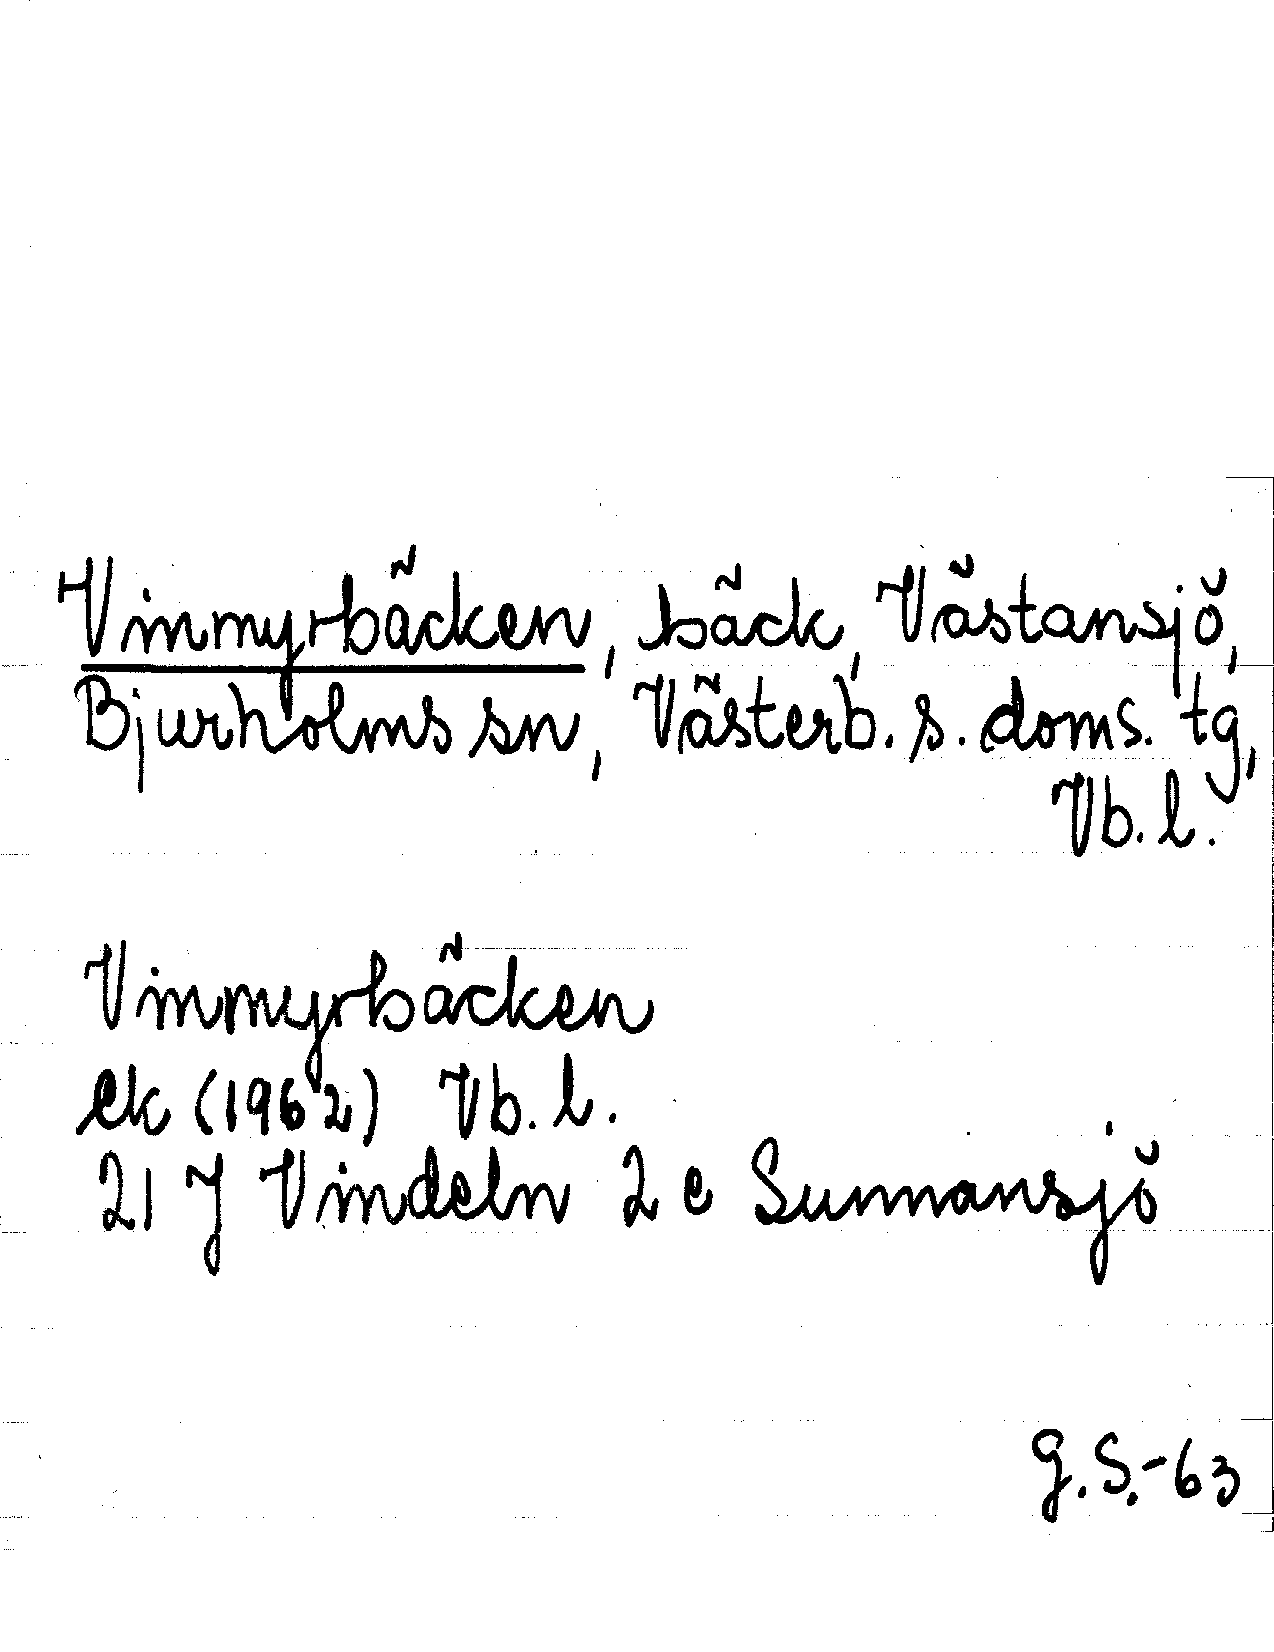 Vinmyrbäcken, bäck, Västansjö,
Bjurholms sn, Västerb. s. doms. tg,
Vb. l.
Vinmyrbäcken
ek (1962) Vb. l.
21 J Vindeln 2 e Sunnansjö
g. S. -63